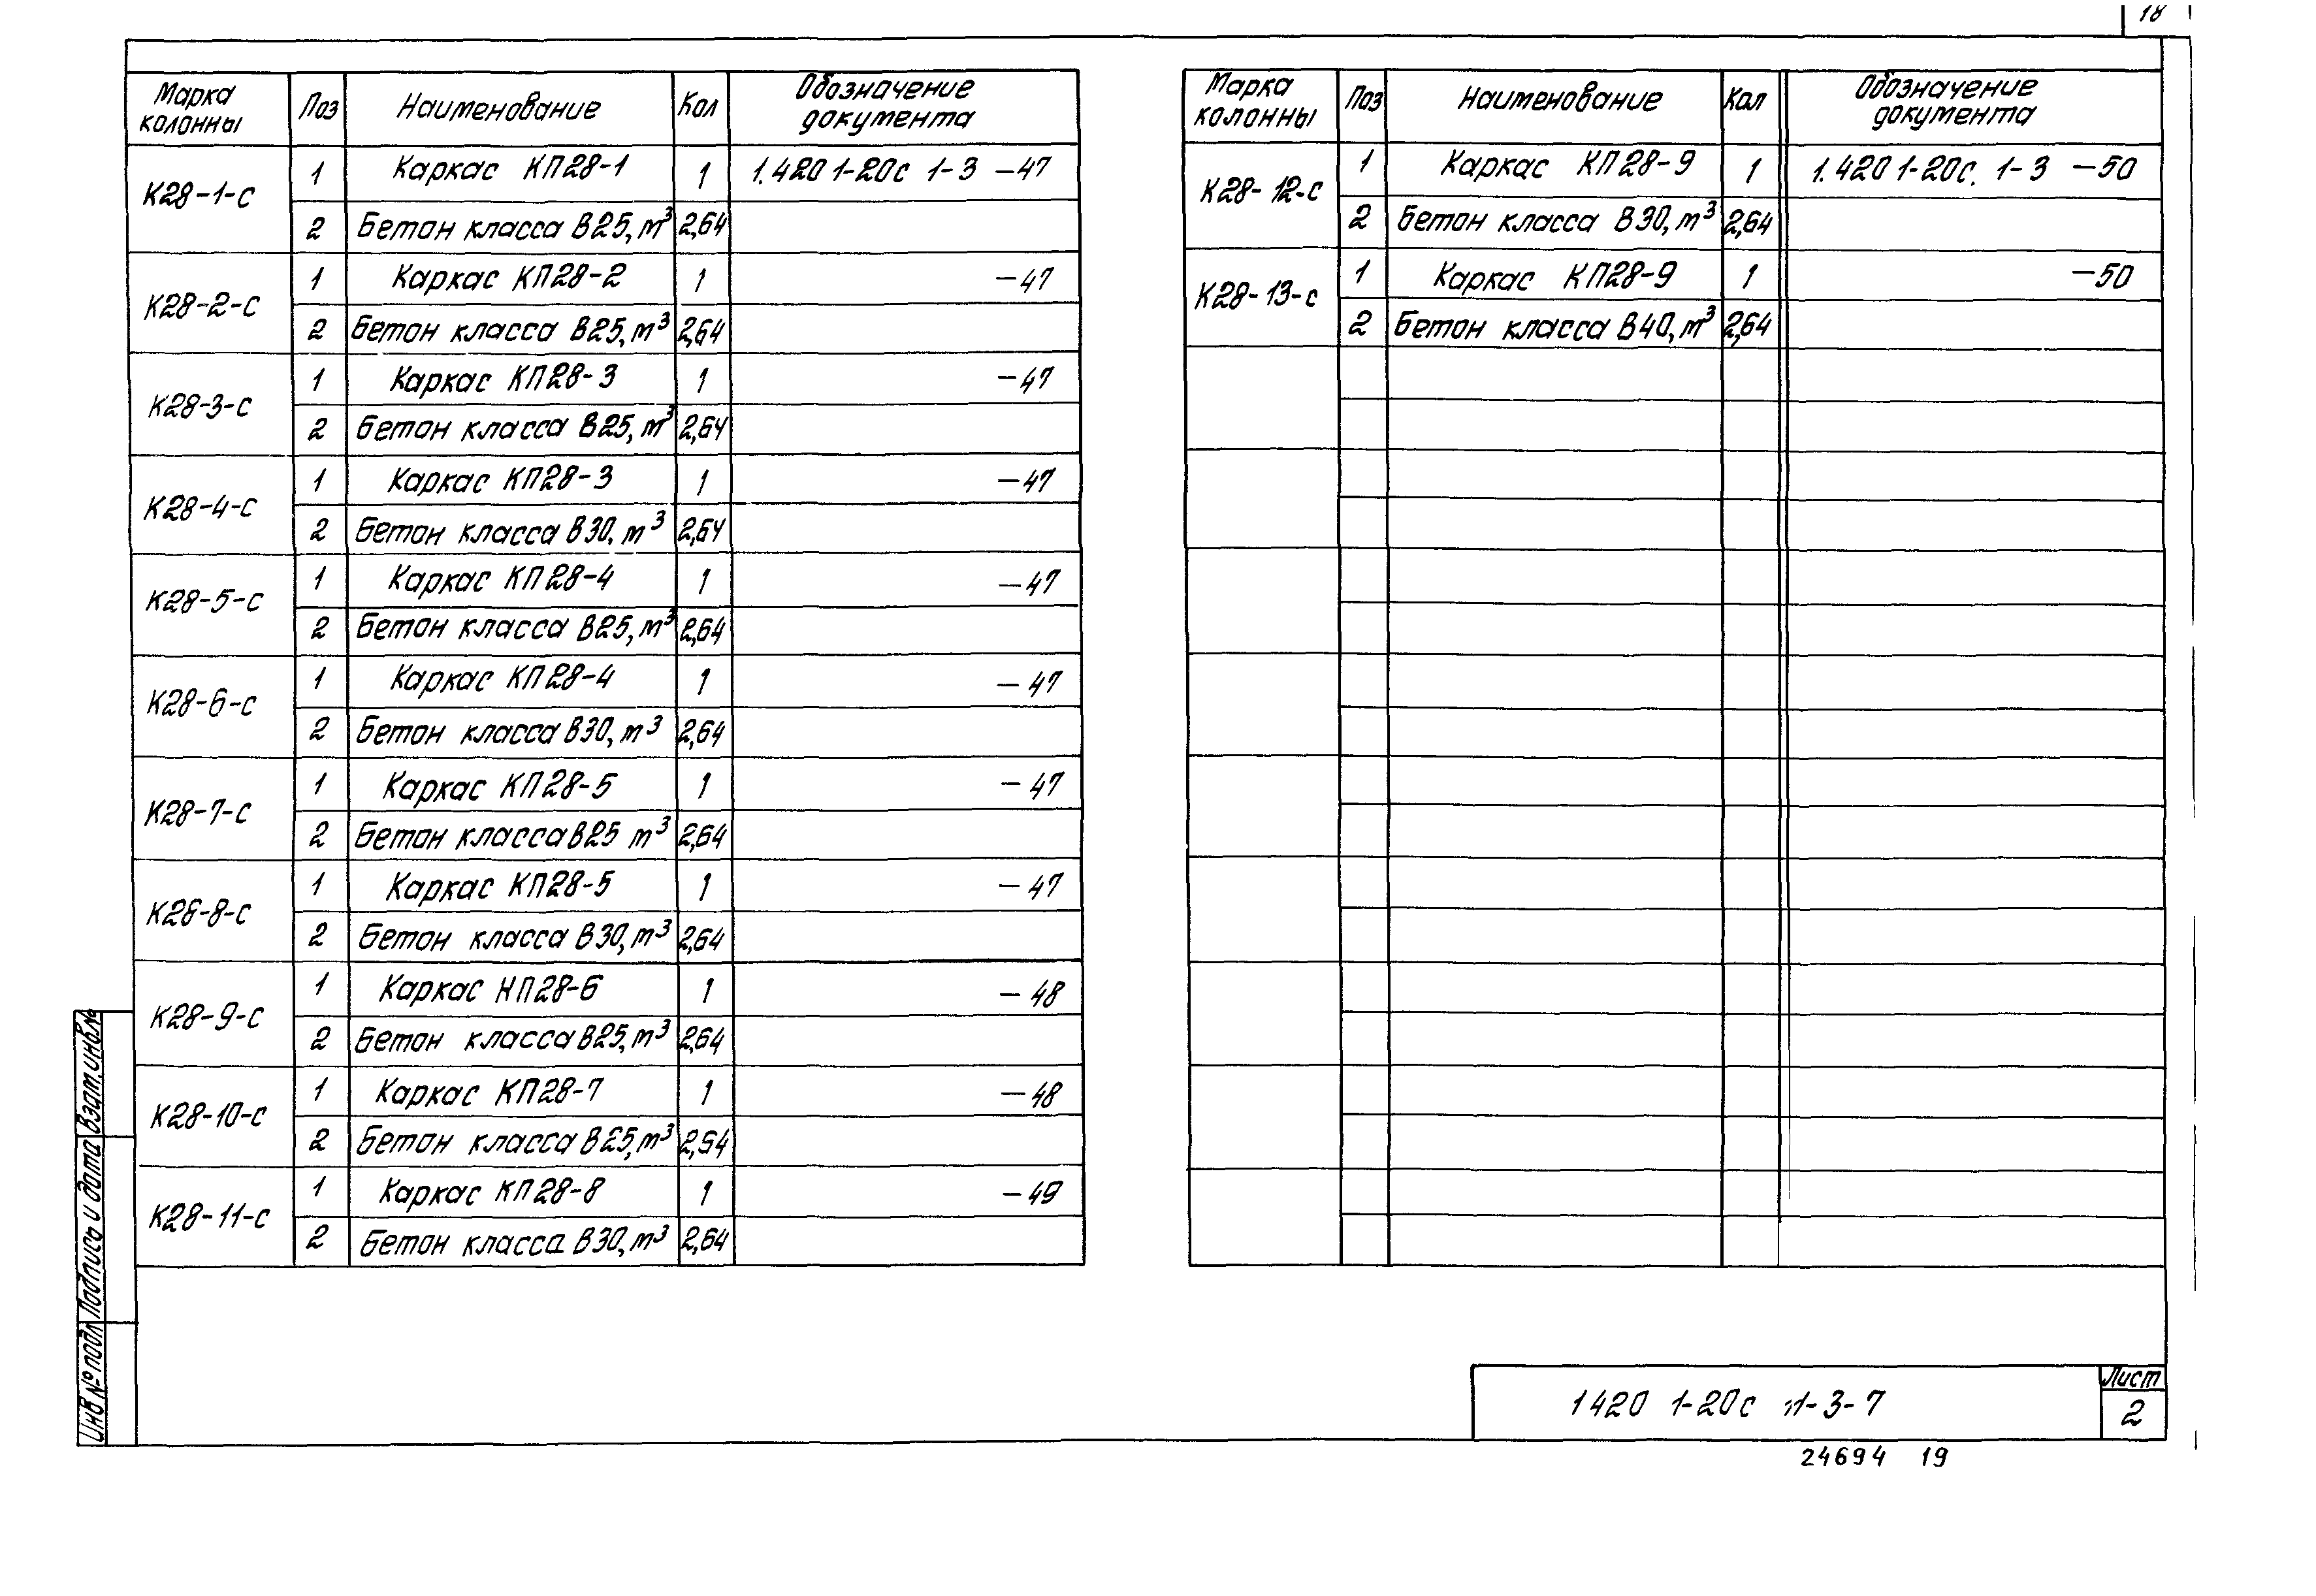 18
Марка колонны Поз Наименование Кол Обозначение документа
К28-1-с 1 Каркас КП28-1 1 1.420 1-20с 1-3 -47
2 Бетон класса В25, м³ 2,64
К28-2-с 1 Каркас КП28-2 1 -47
2 Бетон класса В25, м³ 2,64
К28-3-с 1 Каркас КП28-3 1 -47
2 Бетон класса В25, м³ 2,64
К28-4-с 1 Каркас КП28-3 1 -47
2 Бетон класса В30, м³ 2,64
К28-5-с 1 Каркас КП28-4 1 -47
2 Бетон класса В25, м³ 2,64
К28-6-с 1 Каркас КП28-4 1 -47
2 Бетон класса В30, м³ 2,64
К28-7-с 1 Каркас КП28-5 1 -47
2 Бетон класса В25 м³ 2,64
К28-8-с 1 Каркас КП28-5 1 -47
2 Бетон класса В30, м³ 2,64
К28-9-с 1 Каркас КП28-6 1 -48
2 Бетон класса В25, м³ 2,64
К28-10-с 1 Каркас КП28-7 1 -48
2 Бетон класса В25, м³ 2,64
К28-11-с 1 Каркас КП28-8 1 -49
2 Бетон класса В30, м³ 2,64
Марка колонны Поз Наименование Кол Обозначение документа
К28-12-с 1 Каркас КП28-9 1 1.420 1-20с. 1-3 -50
2 Бетон класса В30, м³ 2,64
К28-13-с 1 Каркас КП28-9 1 -50
2 Бетон класса В40, м³ 2,64
Инв № подл Подпись и дата Взам. инв. №
1420 1-20с 1-3-7
Лист
2
24694 19